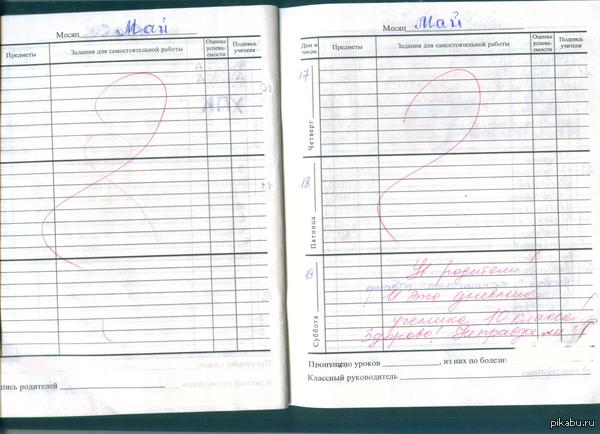 Месяц Май
Предметы
Задания для самостоятельной работы
Оценка успева- емости
Подпись учителя
пись родителей
Месяц Май
Дни и числа
Предметы
Задания для самостоятельной работы
Оценка успева- емости
Подпись учителя
17
Четверг
18
Пятница
19
Суббота
Ув. родители!
! И это дневник
ученика 10 класса!
Здорово! Неправда ли?!
Пропущено уроков , из них по болезни
Классный руководитель
pikabu.ru